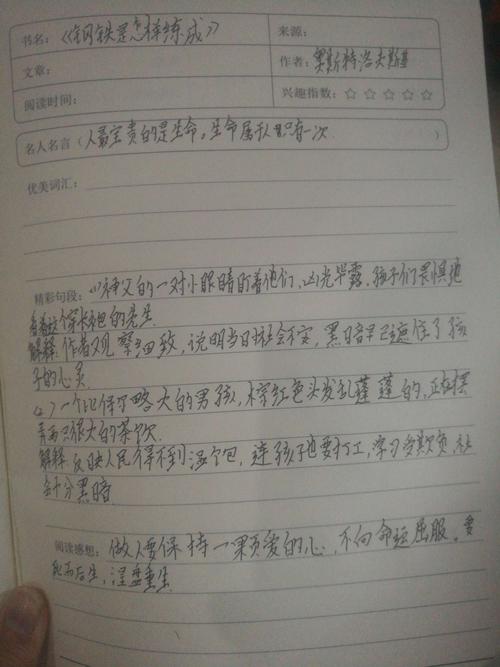 书名：《钢铁是怎样练成》
来源：
文章：
作者：奥斯特洛夫斯基
阅读时间：
兴趣指数：☆ ☆ ☆ ☆ ☆
名人名言（人最宝贵的是生命。生命属于人只有一次）
优美词汇：
精彩句段：(1)神父的一对小眼睛盯着他们，凶光毕露。孩子们畏惧地
看着这个穿长袍的先生
解释：作者观察细致，说明当日社会不安，黑暗早已遮住了孩
子的心灵
(2)一个比保尔略大的男孩，棕红色头发乱蓬蓬的，正在摆
弄两只很大的茶饮
解释：反映人民得不到温饱，连孩子也要打工，学习多欺负 社
会十分黑暗
阅读感想：做人要保持一颗爱的心，不向命运屈服。要
死而后生，涅盘重生